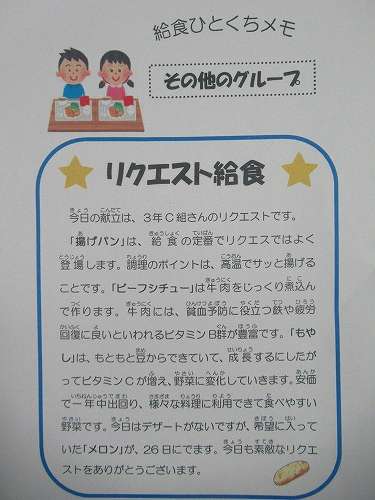 給食ひとくちメモ
その他のグループ
リクエスト給食
今日の献立は、3年C組さんのリクエストです。
「揚げパン」は、給食の定番でリクエスではよく
登場します。調理のポイントは、高温でサッと揚げる
ことです。「ビーフシチュー」は牛肉をじっくり煮込ん
で作ります。牛肉には、貧血予防に役立つ鉄や疲労
回復に良いといわれるビタミンB群が豊富です。「もや
し」は、もともと豆からできていて、成長するにしたが
ってビタミンCが増え、野菜に変化していきます。安価
で一年中出回り、様々な料理に利用できて食べやすい
野菜です。今日はデザートがないですが、希望に入って
いた「メロン」が、26日にでます。今日も素敵なリクエ
ストをありがとうございます。